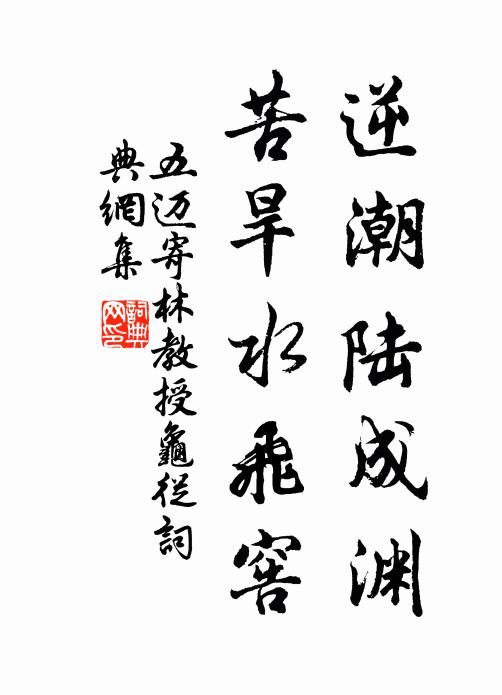 逆潮陆成渊
苦旱水飛窖
五迈寄林教授龜從詞
典網集
詞典
网印